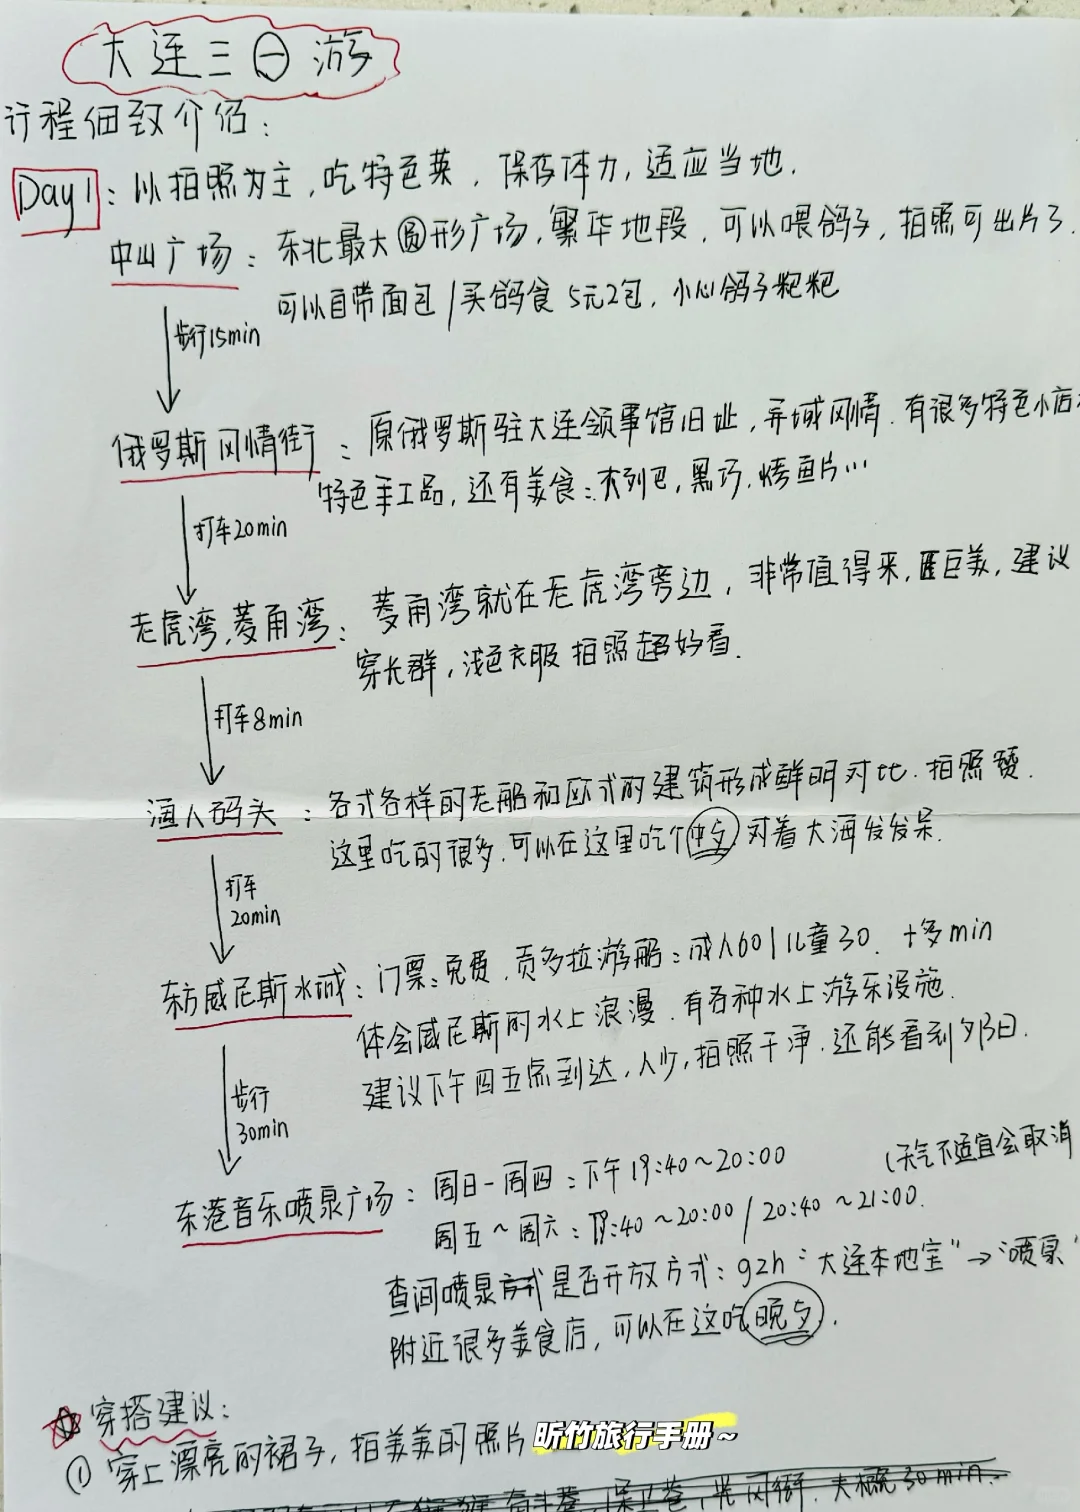 大连三日游
行程细致介绍：
Day1：以拍照为主，吃特色菜，保存体力，适应当地.
中山广场：东北最大圆形广场，繁华地段，可以喂鸽子，拍照可出片了.
可以自带面包/买鸽食 5元2包，小心鸽子粑粑
步行15min
俄罗斯风情街：原俄罗斯驻大连领事馆旧址，异域风情.有很多特色小店
特色手工品，还有美食：大列巴，黑巧，烤鱼片…
打车20min
老虎湾，菱角湾：菱角湾就在老虎湾旁边，非常值得来，巨美，建议
穿长群，浅色衣服 拍照超好看.
打车8min
渔人码头：各式各样的老船和欧式的建筑形成鲜明对比.拍照赞.
这里吃的很多.可以在这里吃个中歺 对着大海发发呆.
打车
20min
东方威尼斯水城：门票：免费.贡多拉游船：成人60|儿童30. 十多min
体会威尼斯的水上浪漫.有各种水上游乐设施.
建议下午四五点到达，人少，拍照干净.还能看到夕阳.
步行
30min
东港音乐喷泉广场：周日-周四：下午19:40~20:00 (天气不适宜会取消
周五~周六：19:40~20:00/20:40~21:00.
查询喷泉是否开放方式：gzh“大连本地宝”→“喷泉”
附近很多美食店，可以在这吃晚歺.
穿搭建议：
① 穿上漂亮的裙子，拍美美的照片
昕竹旅行手册~